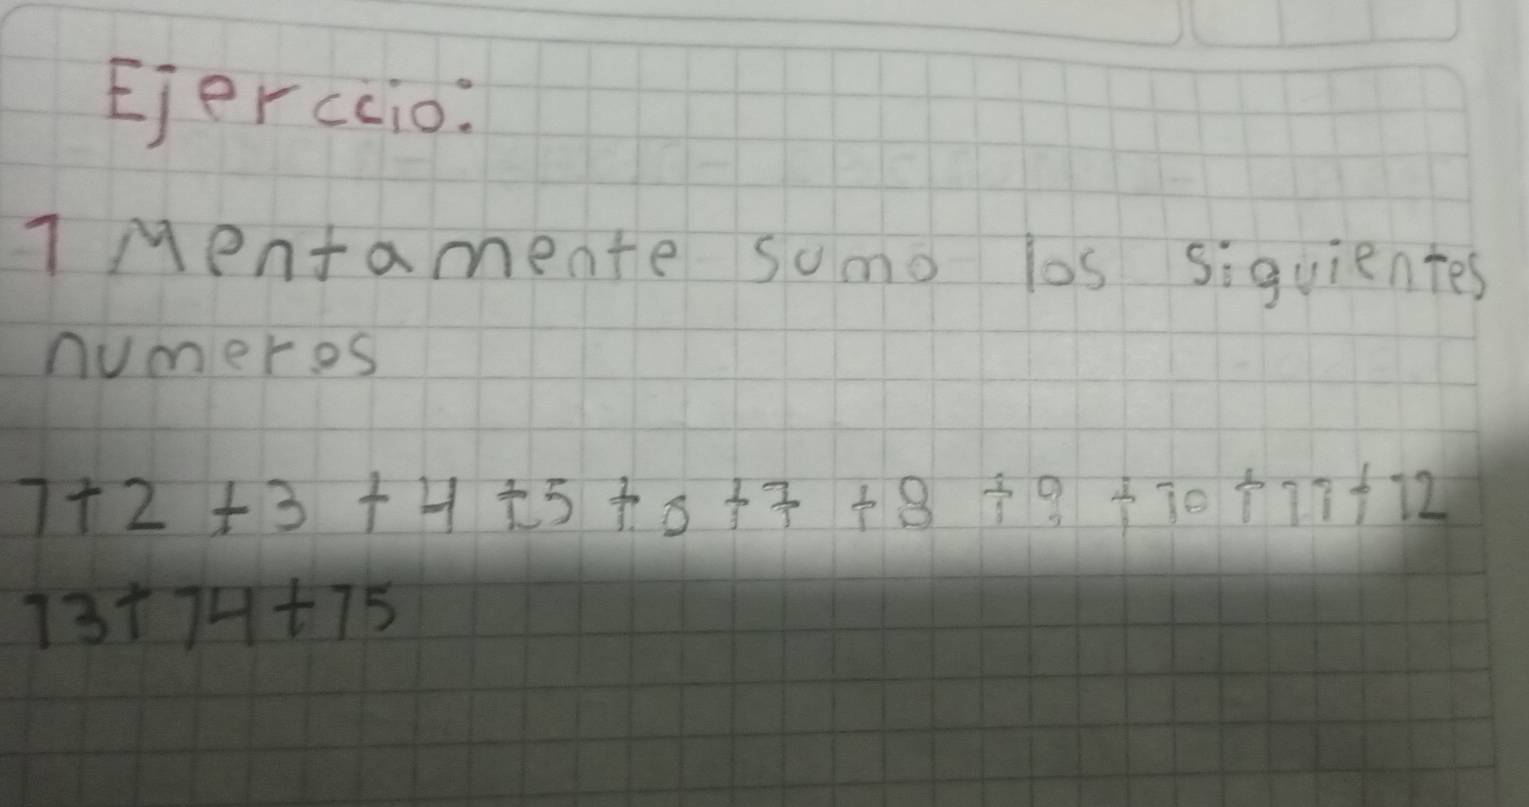 Ejerccio:
1 Mentamente sumo los siguientes
numeros
1+2+3+4+5+6+7+8+9+10+11+12
13+14+15